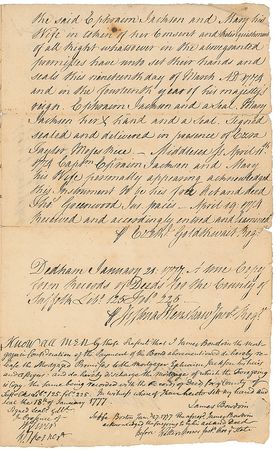 the said Ephraim Jackson and Mary his
Wife in token of her Consent and Relinquishment
of all Right whatsoever in the abovegranted
premises have unto set their hands and
seals this nineteenth day of March AD 1774
and in the fourteenth year of his majestys
reign. Ephraim Jackson and a Seal. Mary
Jackson her X hand and a Seal. Signed
sealed and delivered in presence of Ezra
Taylor Moses Rice — Middlesex Ss April 11th
1774 Captn Ephraim Jackson and Mary
his Wife personally appearing acknowledged
this Instrument to be his free Act and deed
Thos Greenwood Jus pacis — April 19 1774
Received and accordingly entred and
Goldthwait Regr
Dedham January 21 1777 A true Copy
from Records of Deeds for the County of
Suffolk Lib 125 Folo 225
Regr
Know all Men by these Present that I James Bowdoin the mort
of the payment of the Bond abovementioned do hereby re-
lease the Mortgaged Premises to the Mortgager Ephraim Jackson
and do hereby discharge the mortgage of which the foregoing
is Copy, the same being recorded with the records of Deeds for ye County of
Suffolk Lib 125 fol 225. In witness whereof I have hereto set my hand and
Seal the 18th of January 1777
Signed Seal'd &c
in Presence of
James Bowdoin
Suffo Boston Jany 27 1777 the abovesd James Bowdoin
acknowledged the foregoing to be his act and Deed
Before